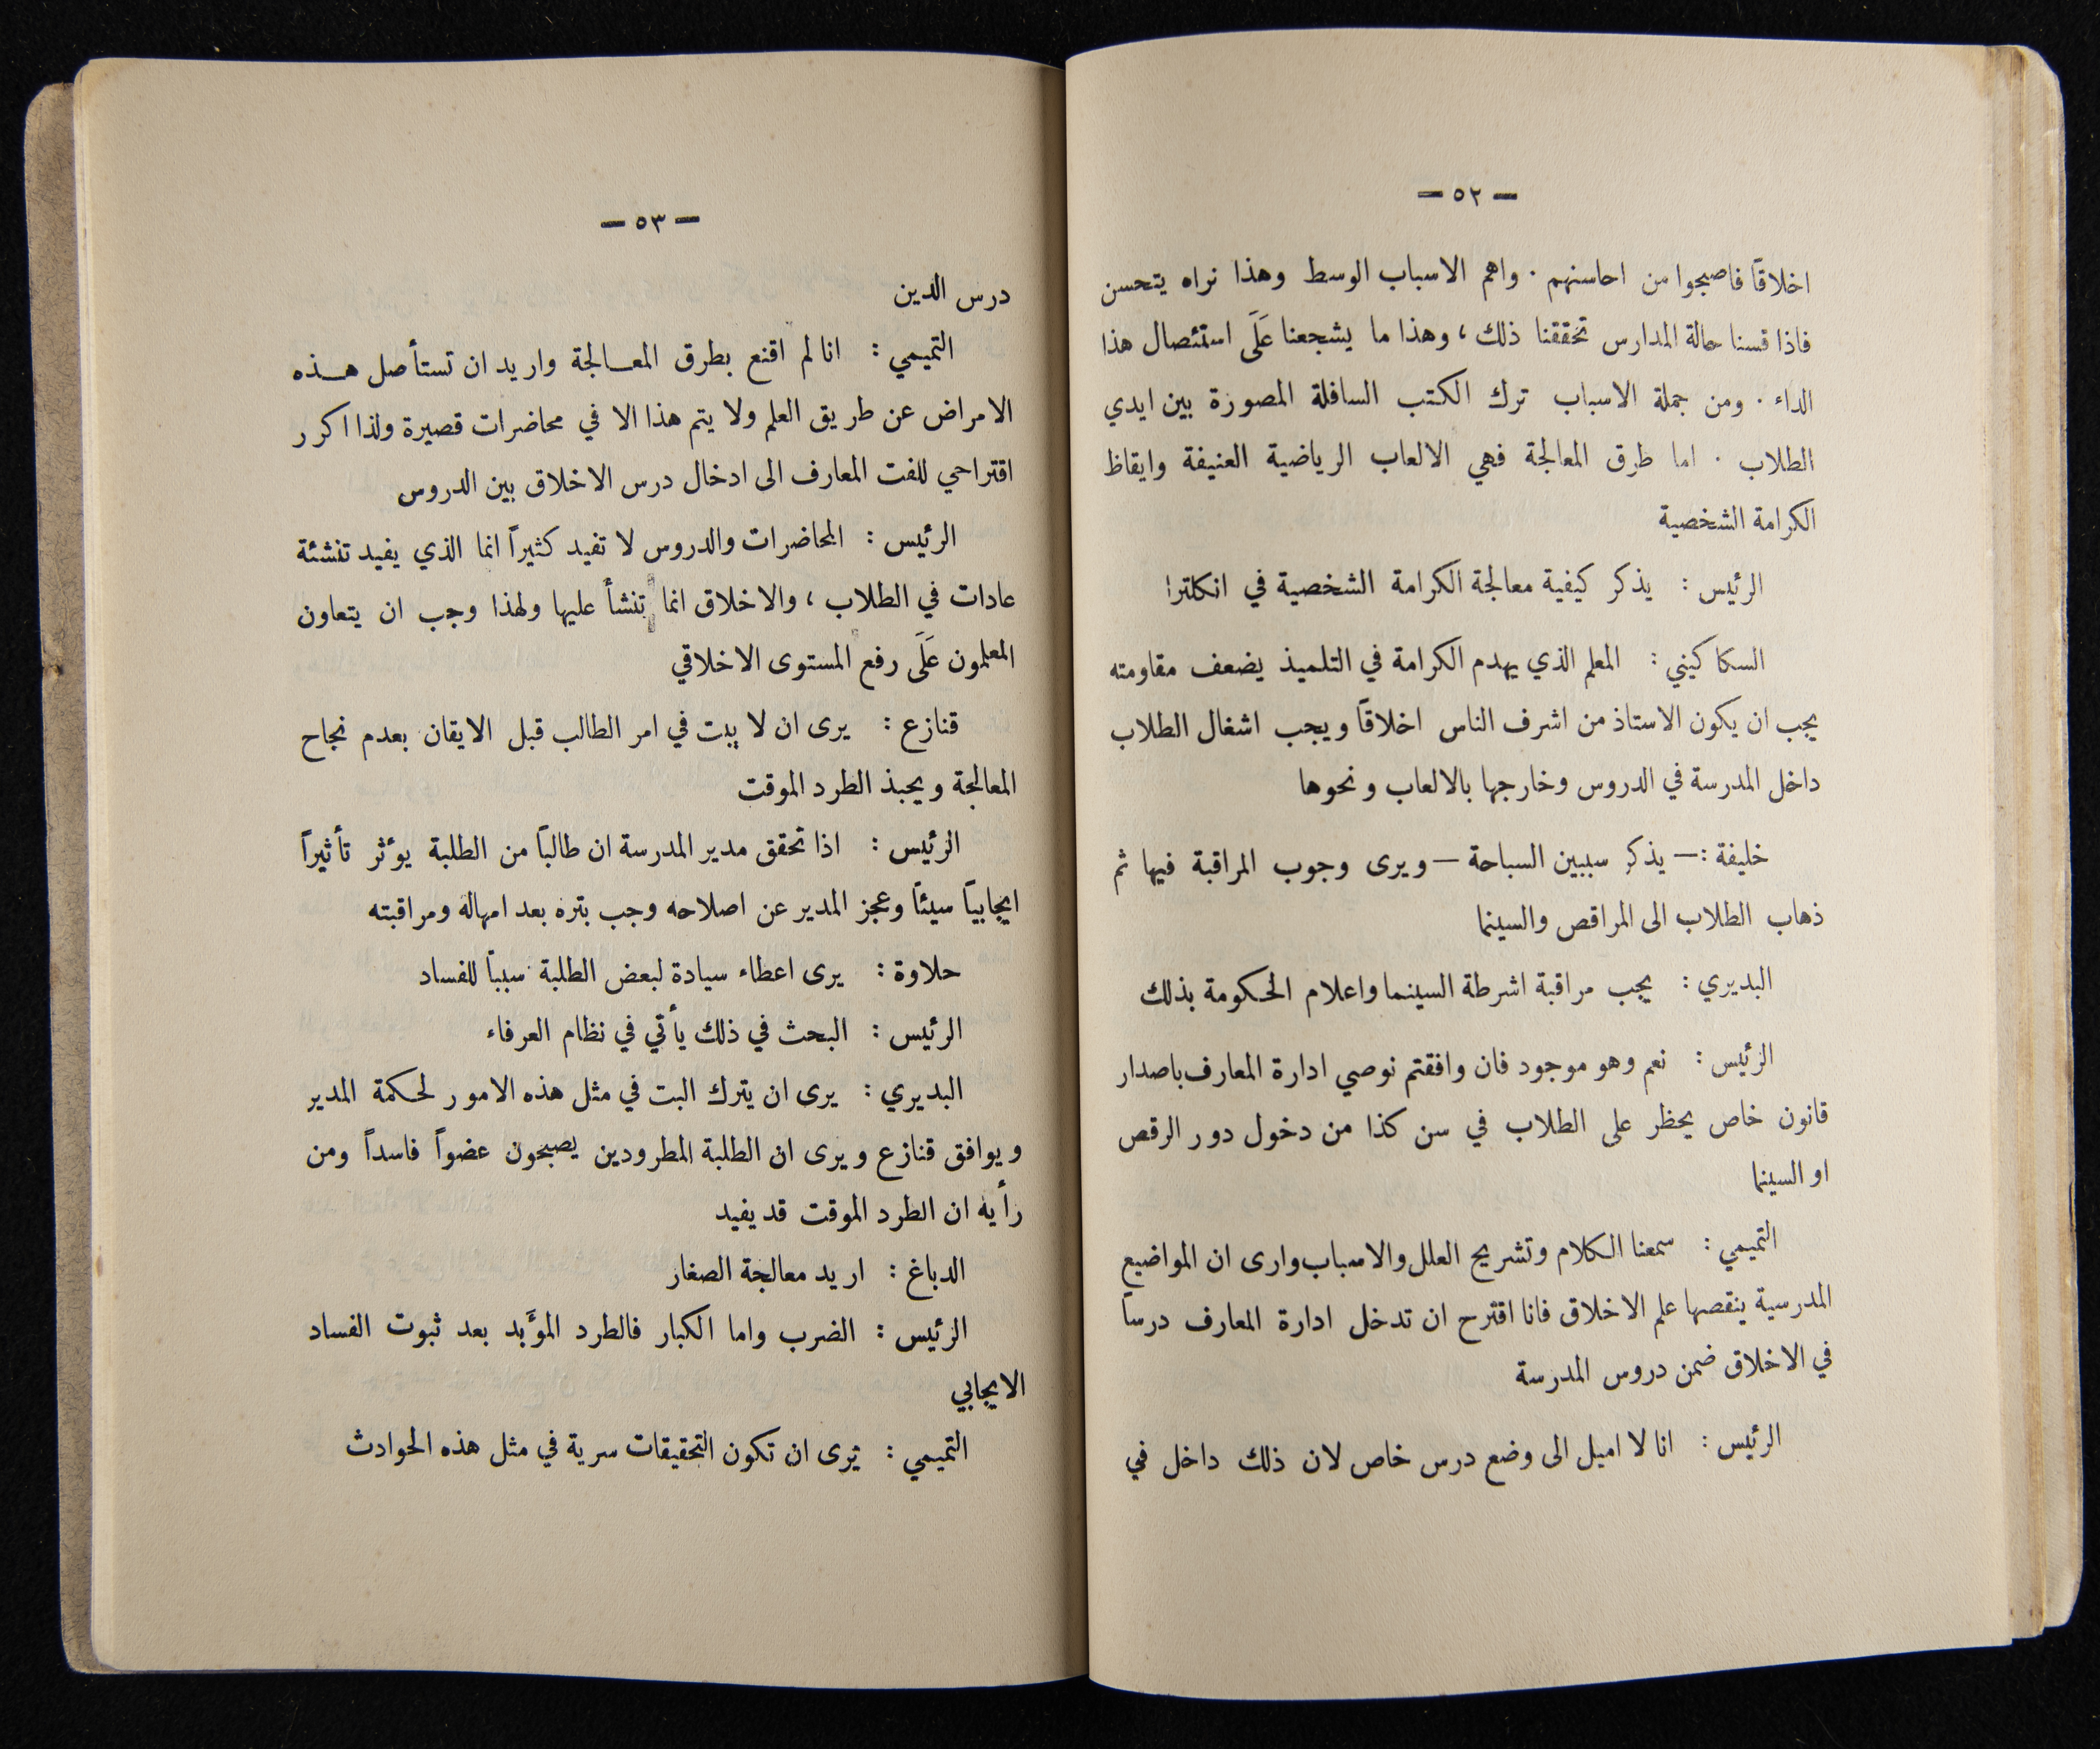 — ٥٢ —
اخلاقاً فاصبحوا من احاسنهم . واهم الاسباب الوسط وهذا نراه يتحسن
فاذا قسنا حالة المدارس تحققنا ذلك ، وهذا ما يشجعنا عَلَى استئصال هذا
الداء . ومن جملة الاسباب ترك الكتب السافلة المصورة بين ايدي
الطلاب . اما طرق المعالجة فهي الالعاب الرياضية العنيفة وايقاظ
الكرامة الشخصية
الرئيس : يذكر كيفية معالجة الكرامة الشخصية في انكلترا
السكاكيني : المعلم الذي يهدم الكرامة في التلميذ يضعف مقاومته
يجب ان يكون الاستاذ من اشرف الناس اخلاقاً ويجب اشغال الطلاب
داخل المدرسة في الدروس وخارجها بالالعاب ونحوها
خليفة :— يذكر سببين السباحة — ويرى وجوب المراقبة فيها ثم
ذهاب الطلاب الى المراقص والسينما
البديري : يجب مراقبة اشرطة السينما واعلام الحكومة بذلك
الرئيس : نعم وهو موجود فان وافقتم نوصي ادارة المعارف باصدار
قانون خاص يحظر على الطلاب في سن كذا من دخول دور الرقص
او السينما
التميمي : سمعنا الكلام وتشريح العلل والاسباب وارى ان المواضيع
المدرسية ينقصها علم الاخلاق فانا اقترح ان تدخل ادارة المعارف درساً
في الاخلاق ضمن دروس المدرسة
الرئيس : انا لا اميل الى وضع درس خاص لان ذلك داخل في
— ٥٣ —
درس الدين
التميمي : انا لم اقنع بطرق المعالجة واريد ان تستأصل هذه
الامراض عن طريق العلم ولا يتم هذا الا في محاضرات قصيرة ولذا اكرر
اقتراحي للفت المعارف الى ادخال درس الاخلاق بين الدروس
الرئيس : المحاضرات والدروس لا تفيد كثيراً انما الذي يفيد تنشئة
عادات في الطلاب ، والاخلاق انما تنشأ عليها ولهذا وجب ان يتعاون
المعلمون عَلَى رفع المستوى الاخلاقي
قنازع : يرى ان لا يبت في امر الطالب قبل الايقان بعدم نجاح
المعالجة ويحبذ الطرد الموقت
الرئيس : اذا تحقق مدير المدرسة ان طالباً من الطلبة يؤثر تأثيراً
ايجابياً سيئاً وعجز المدير عن اصلاحه وجب بتره بعد امهاله ومراقبته
حلاوة : يرى اعطاء سيادة لبعض الطلبة سبباً للفساد
الرئيس : البحث في ذلك يأتي في نظام العرفاء
البديري : يرى ان يترك البت في مثل هذه الامور لحكمة المدير
ويوافق قنازع ويرى ان الطلبة المطرودين يصبحون عضواً فاسداً ومن
رأيه ان الطرد الموقت قد يفيد
الدباغ : اريد معالجة الصغار
الرئيس : الضرب واما الكبار فالطرد المؤَبد بعد ثبوت الفساد
الايجابي
التميمي : يرى ان تكون التحقيقات سرية في مثل هذه الحوادث